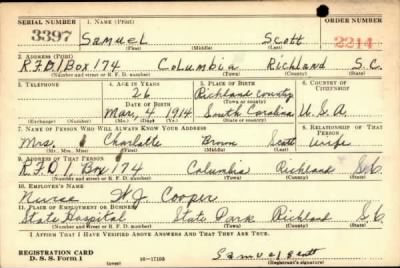 SERIAL NUMBER 1. NAME (Print) ORDER NUMBER
3397 Samuel Scott 2214
(First) (Middle) (Last)
2. ADDRESS (Print)
R.F.D. 1 Box 174 Columbia Richland S.C.
(Number and street or R. F. D. number) (Town) (County) (State)
3. TELEPHONE 4. AGE IN YEARS 5. PLACE OF BIRTH 6. COUNTRY OF CITIZENSHIP
26 Richland County
DATE OF BIRTH (Town or county)
Mar. 4 1914 South Carolina U.S.A.
(Exchange) (Number) (Mo.) (Day) (Yr.) (State or country)
7. NAME OF PERSON WHO WILL ALWAYS KNOW YOUR ADDRESS 8. RELATIONSHIP OF THAT PERSON
Mrs. Charlotte Brown Scott Wife
(Mr., Mrs., Miss) (First) (Middle) (Last)
9. ADDRESS OF THAT PERSON
R.F.D. 1 Box 174 Columbia Richland S.C.
(Number and street or R. F. D. number) (Town) (County) (State)
10. EMPLOYER'S NAME
Nurse W.J. Cooper
11. PLACE OF EMPLOYMENT OR BUSINESS
State Hospital State Park Richland S.C.
(Number and street or R. F. D. number) (Town) (County) (State)
I AFFIRM THAT I HAVE VERIFIED ABOVE ANSWERS AND THAT THEY ARE TRUE.
REGISTRATION CARD
D. S. S. Form 1 16-17105 Samuel Scott
(Registrant's signature)